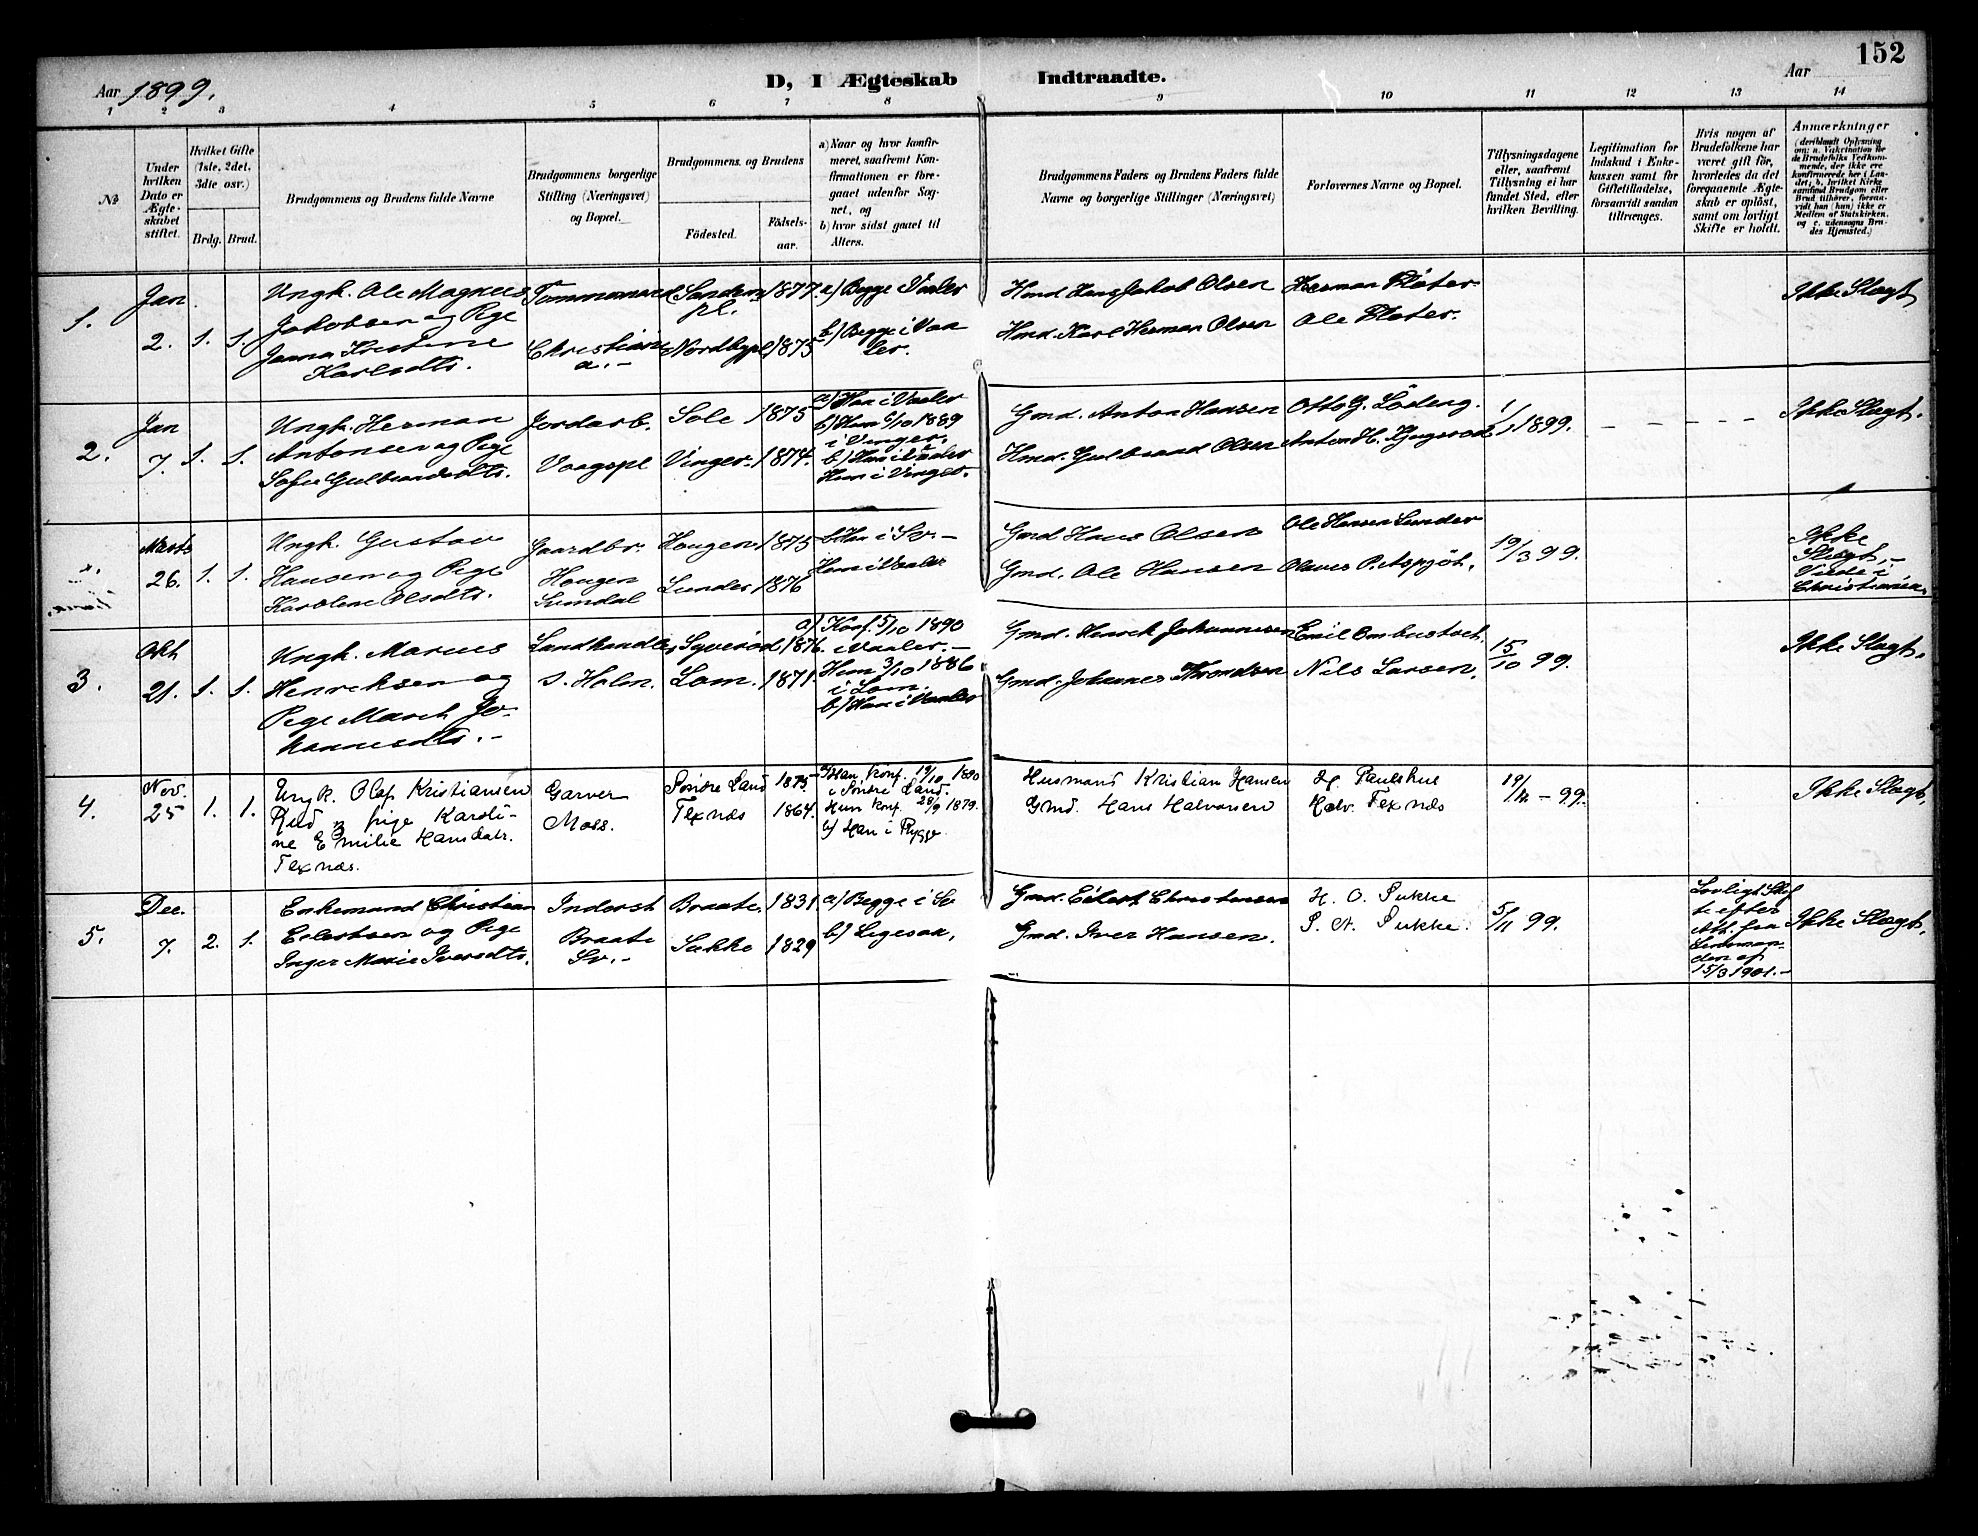 152
D, I Ægteskab Indtraadte.
Aar 1899.
Aar
1 2 3 4 5 6 7 8 9 10 11 12 13 14
No
Under hvilken Dato er Ægteskabet stiftet.
Hvilket Gifte (1ste, 2det, 3die osv.)
Brdg. Brud.
Brudgommens og Brudens fulde Navne
Brudgommens borgerlige Stilling (Næringsvei) og Bopæl.
Brudgommens og Brudens
Fødested.
Fødselsaar.
a) Naar og hvor konfirmeret, saafremt Konfirmationen er foregaaet udenfor Sognet, og
b) hvor sidst gaaet til Alters.
Brudgommens Faders og Brudens Faders fulde Navne og borgerlige Stillinger (Næringsvei)
Forlovernes Navne og Bopæl.
Tillysningsdagene eller, saafremt Tillysning ei har fundet Sted, efter hvilken Bevilling.
Legitimation for Indskud i Enkekassen samt for Giftetilladelse, forsaavidt saadan tiltrænges.
Hvis nogen af Brudefolkene har været gift før, hvorledes da det foregaaende Ægteskab er opløst, samt om lovligt Skifte er holdt.
Anmærkninger
(deriblandt Oplysning om: a. Vakcination for de Brudefolks Vedkommende, der ikke ere konfirmerede her i Landet, b. hvilket Kirkesamfund Brudgom eller Brud tilhører, forsaavidt han (hun) ikke er Medlem af Statskirken, og c. udensogns Brudes Hjemsted.)
1.
Jan
2. 1. 1.
Ungk. Ole Magnus
Jakobsen og Pige
Janna Kristine
Karlsdtr.
Tømmermand
Christiania.-
Sandempl. 1877.
Nordbypl 1875
a) Begge Vaaler
b) Begge i Vaaler.
Hmd. Hans Jakob Olsen
Hmd. Karl Herman Olsen
Herman Fløter.
Ole Fløter.
Ikke Slægt
2.
Jan
7. 1. 1.
Ungk. Herman
Antonsen og Pige
Sofie Gulbrandsdtr.
Jordarb.
Vaagspl
Sole 1875
Vinger. 1874.
a) Han i Vaaler
b) Hun 6/10 1889
i Vinger.
b) Han i Vaaler
Hun i Vinger.
Gmd. Anton Hansen
Hmd. Gulbrand Olsen
Otto G. Løding.
Anton H.
1/1 1899.
Ikke Slægt.
Marts
26. 1. 1.
Ungk. Gustav
Hansen og Pige
Karoline Olsdtr.
Gaardbr.
Haugen
Svindal
Haugen 1875
Lunder 1876
b) Han i Sv.-
Hun i Vaaler
Gmd Hans Olsen
Gmd. Ole Hansen
Ole Hansen Lunder
Olaves P. Aspjøt.
19/3 99.
Ikke
Slægt.-
Viede i
Christiania.
3.
Okt
21. 1. 1.
Ungk. Marius
Henriksen og
Pige Marit Johannesdtr.-
Landhandler
s. Holm.
Syverød 1876.
Lom. 1871.
a) Konf. 5/10 1890
i Vaaler.-
Hun 3/10 1886
i Lom.
b) Han i Vaaler
Gmd. Henrik Johannesen
Gmd. Johannes Throndsen
Emil Ombustvedt.
Nils Larsen.
15/10 99.
Ikke Slægt.
4.
Nov.
25 1. 1.
Ungk. Olaf Kristiansen
Rud og pige Karoline Emilie Hansdatr.
Texnæs.
Garver
Moss.
Søndre Land 1875
Texnæs 1864.
a) Han konf. 19/10 1890
i Søndre Land.
Hun konf. 28/9 1879.
b) Han i Rygge
Husmand Kristian Hansen
Gmd. Hans Halvorsen
H. Paulshus
Halv. Texnæs
19/11 - 99.
Ikke Slægt.
5.
Dec.
7. 2. 1.
Enkemand Christian
Eilertsen og Pige
Inger Marie Iversdtr.
Inderst
Braate
Sv.-
Braate. 1831.
Sukke 1829
a) Begge i Sv
b) Ligesaa,
Gmd. Eilert Christensen
Gmd. Iver Hansen.
H. O. Sukke
S. A. Sukke.
5/11 99.
Lovligt Skifte efter
Att. fra
Lensmanden af
15/3 1901.-
Ikke Slægt.